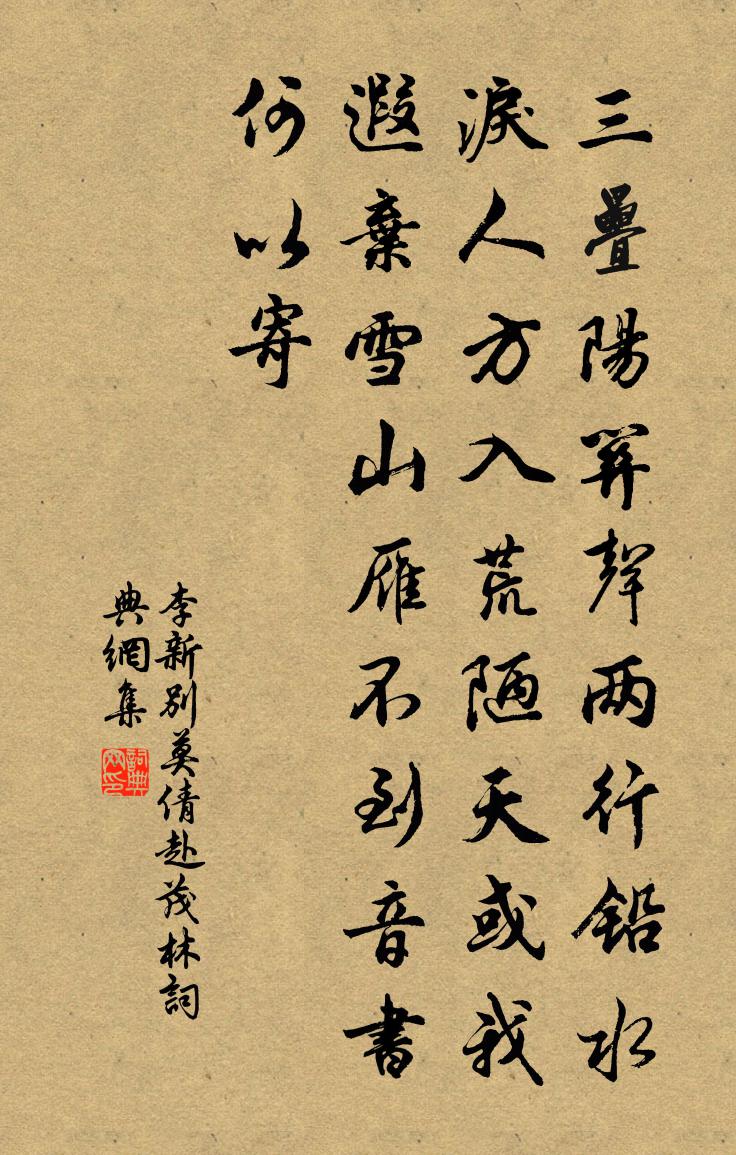 三疊陽關聲兩行鉛水
淚人方入荒陋天或我
遐棄雪山雁不到音書
何以寄
李新別莫倩赴茂林詞
典網集
詞典網印